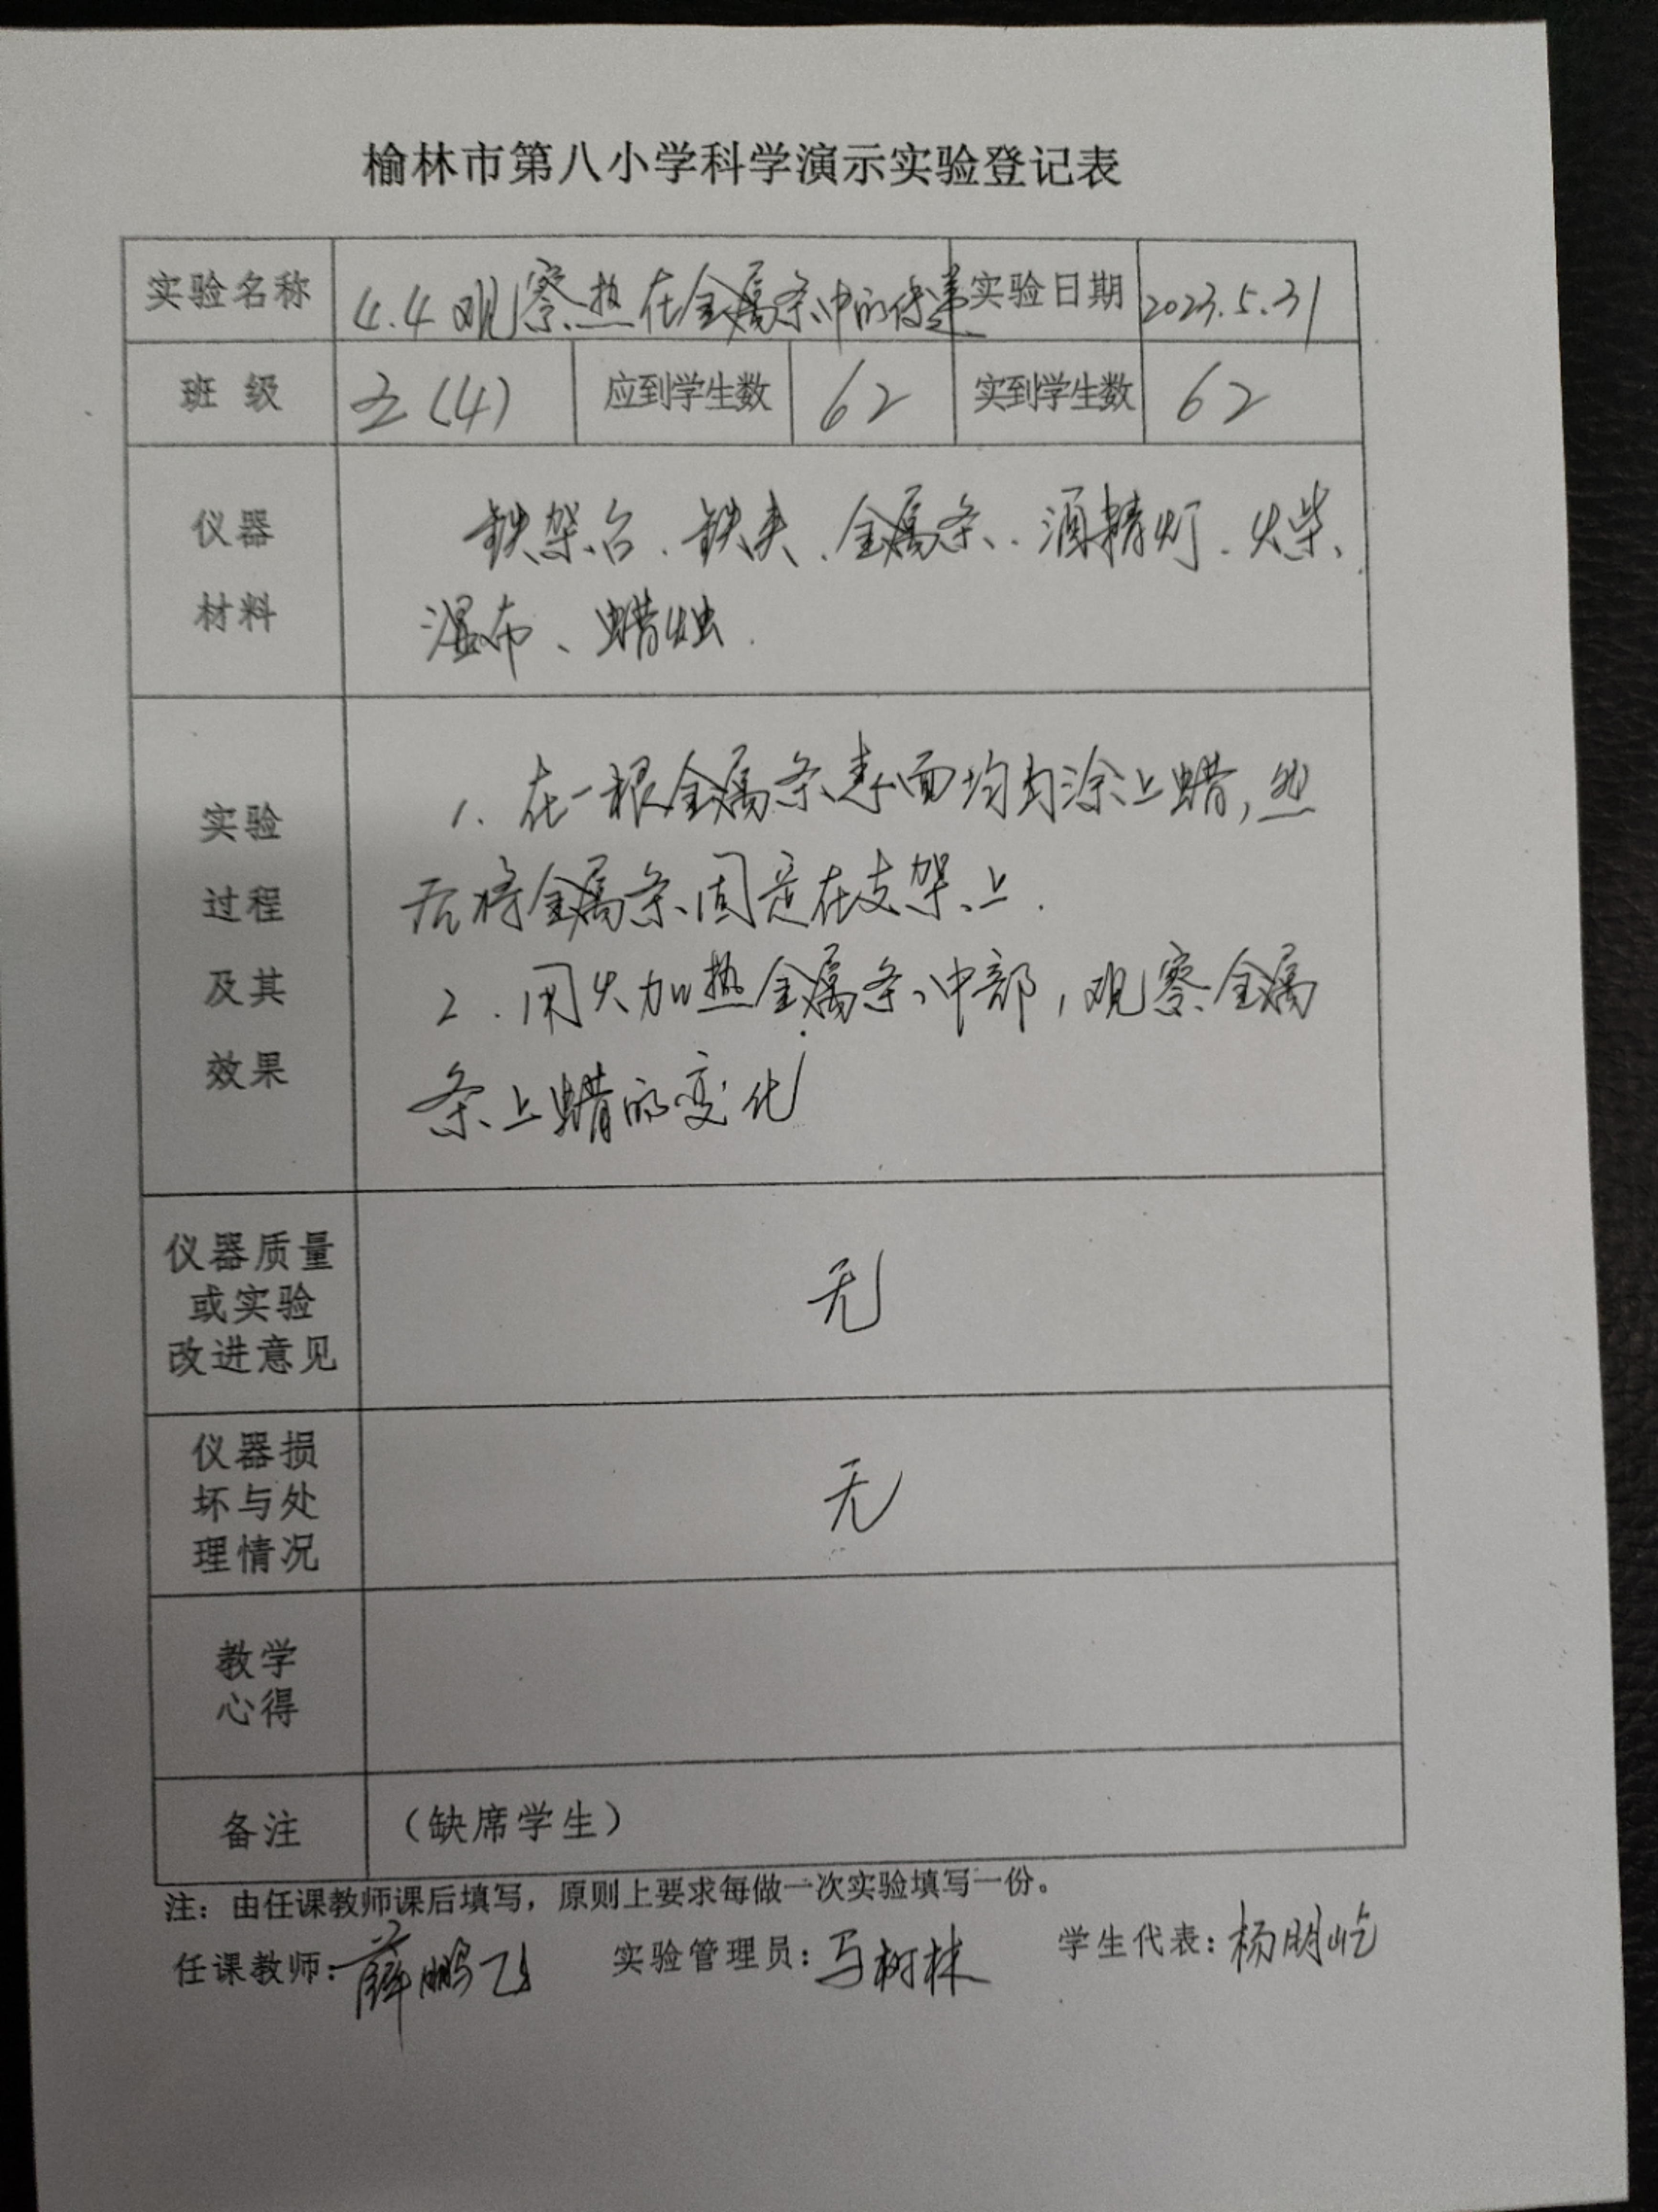 榆林市第八小学科学演示实验登记表
实验名称 4.4观察热在金属条中的传递 实验日期 2023.5.31
班 级 五(4) 应到学生数 62 实到学生数 62
仪器
材料
铁架台、铁夹、金属条、酒精灯、火柴、
湿布、蜡烛.
实验
过程
及其
效果
1. 在一根金属条表面均匀涂上蜡,然
后将金属条固定在支架上.
2. 用火加热金属条中部,观察金属
条上蜡的变化
仪器质量
或实验
改进意见
无
仪器损
坏与处
理情况
无
教学
心得
备注 （缺席学生）
注：由任课教师课后填写，原则上要求每做一次实验填写一份。
任课教师：薛鹏飞 实验管理员：马树林 学生代表：杨明屹